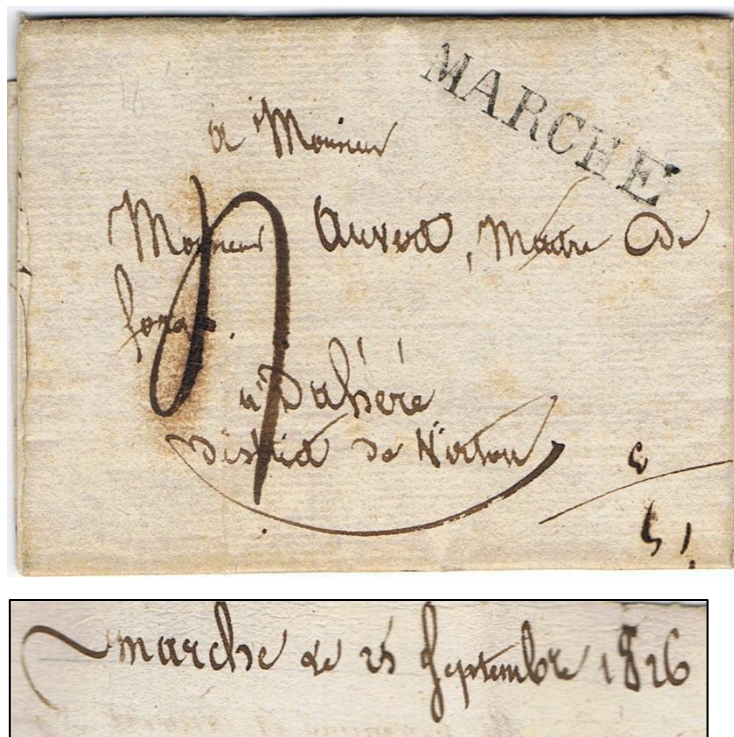 MARCHE
a Monsieur
Monsieur Auvod, Maitre De
forges.
a Dahéré
District de Virton
marche le 25 Septembre 1826